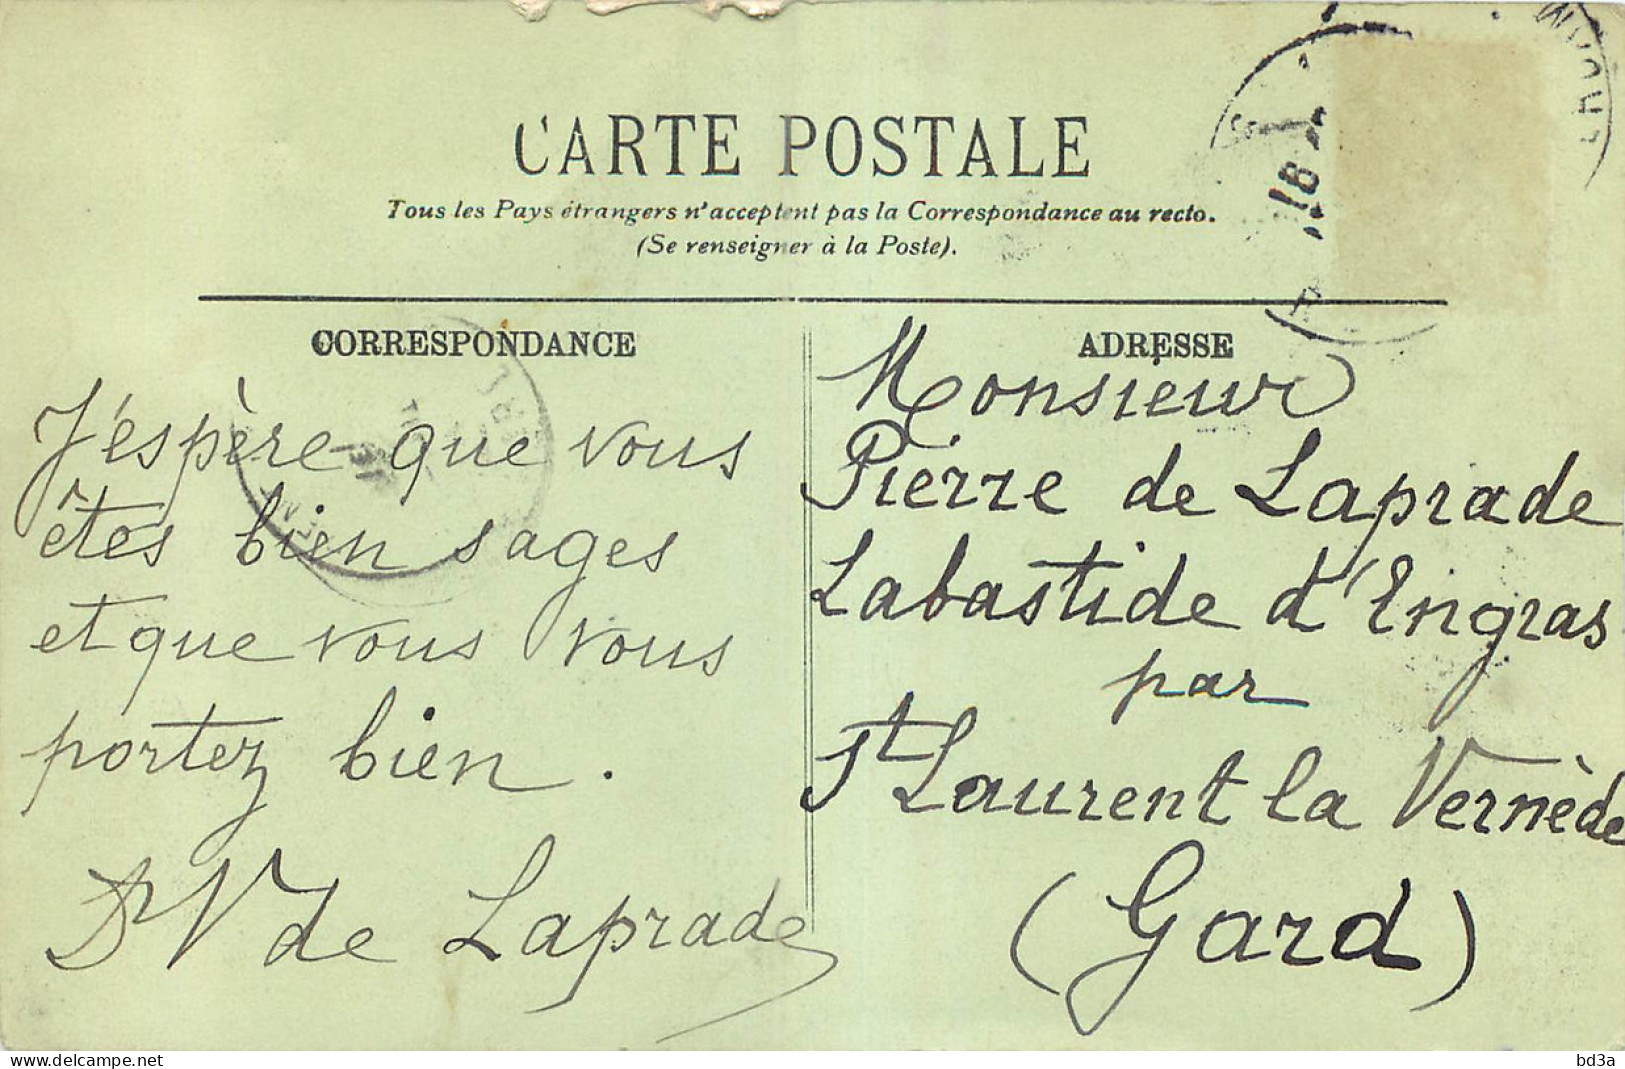 CARTE POSTALE
Tous les Pays étrangers n'acceptent pas la Correspondance au recto.
(Se renseigner à la Poste).
CORRESPONDANCE
J'espère que vous
êtes bien sages
et que vous vous
portez bien.
Dr V de Laprade
ADRESSE
Monsieur
Pierre de Laprade
Labastide d'Engras
par
St Laurent la Vernède
(Gard)
18
delcampe.net
bd3a